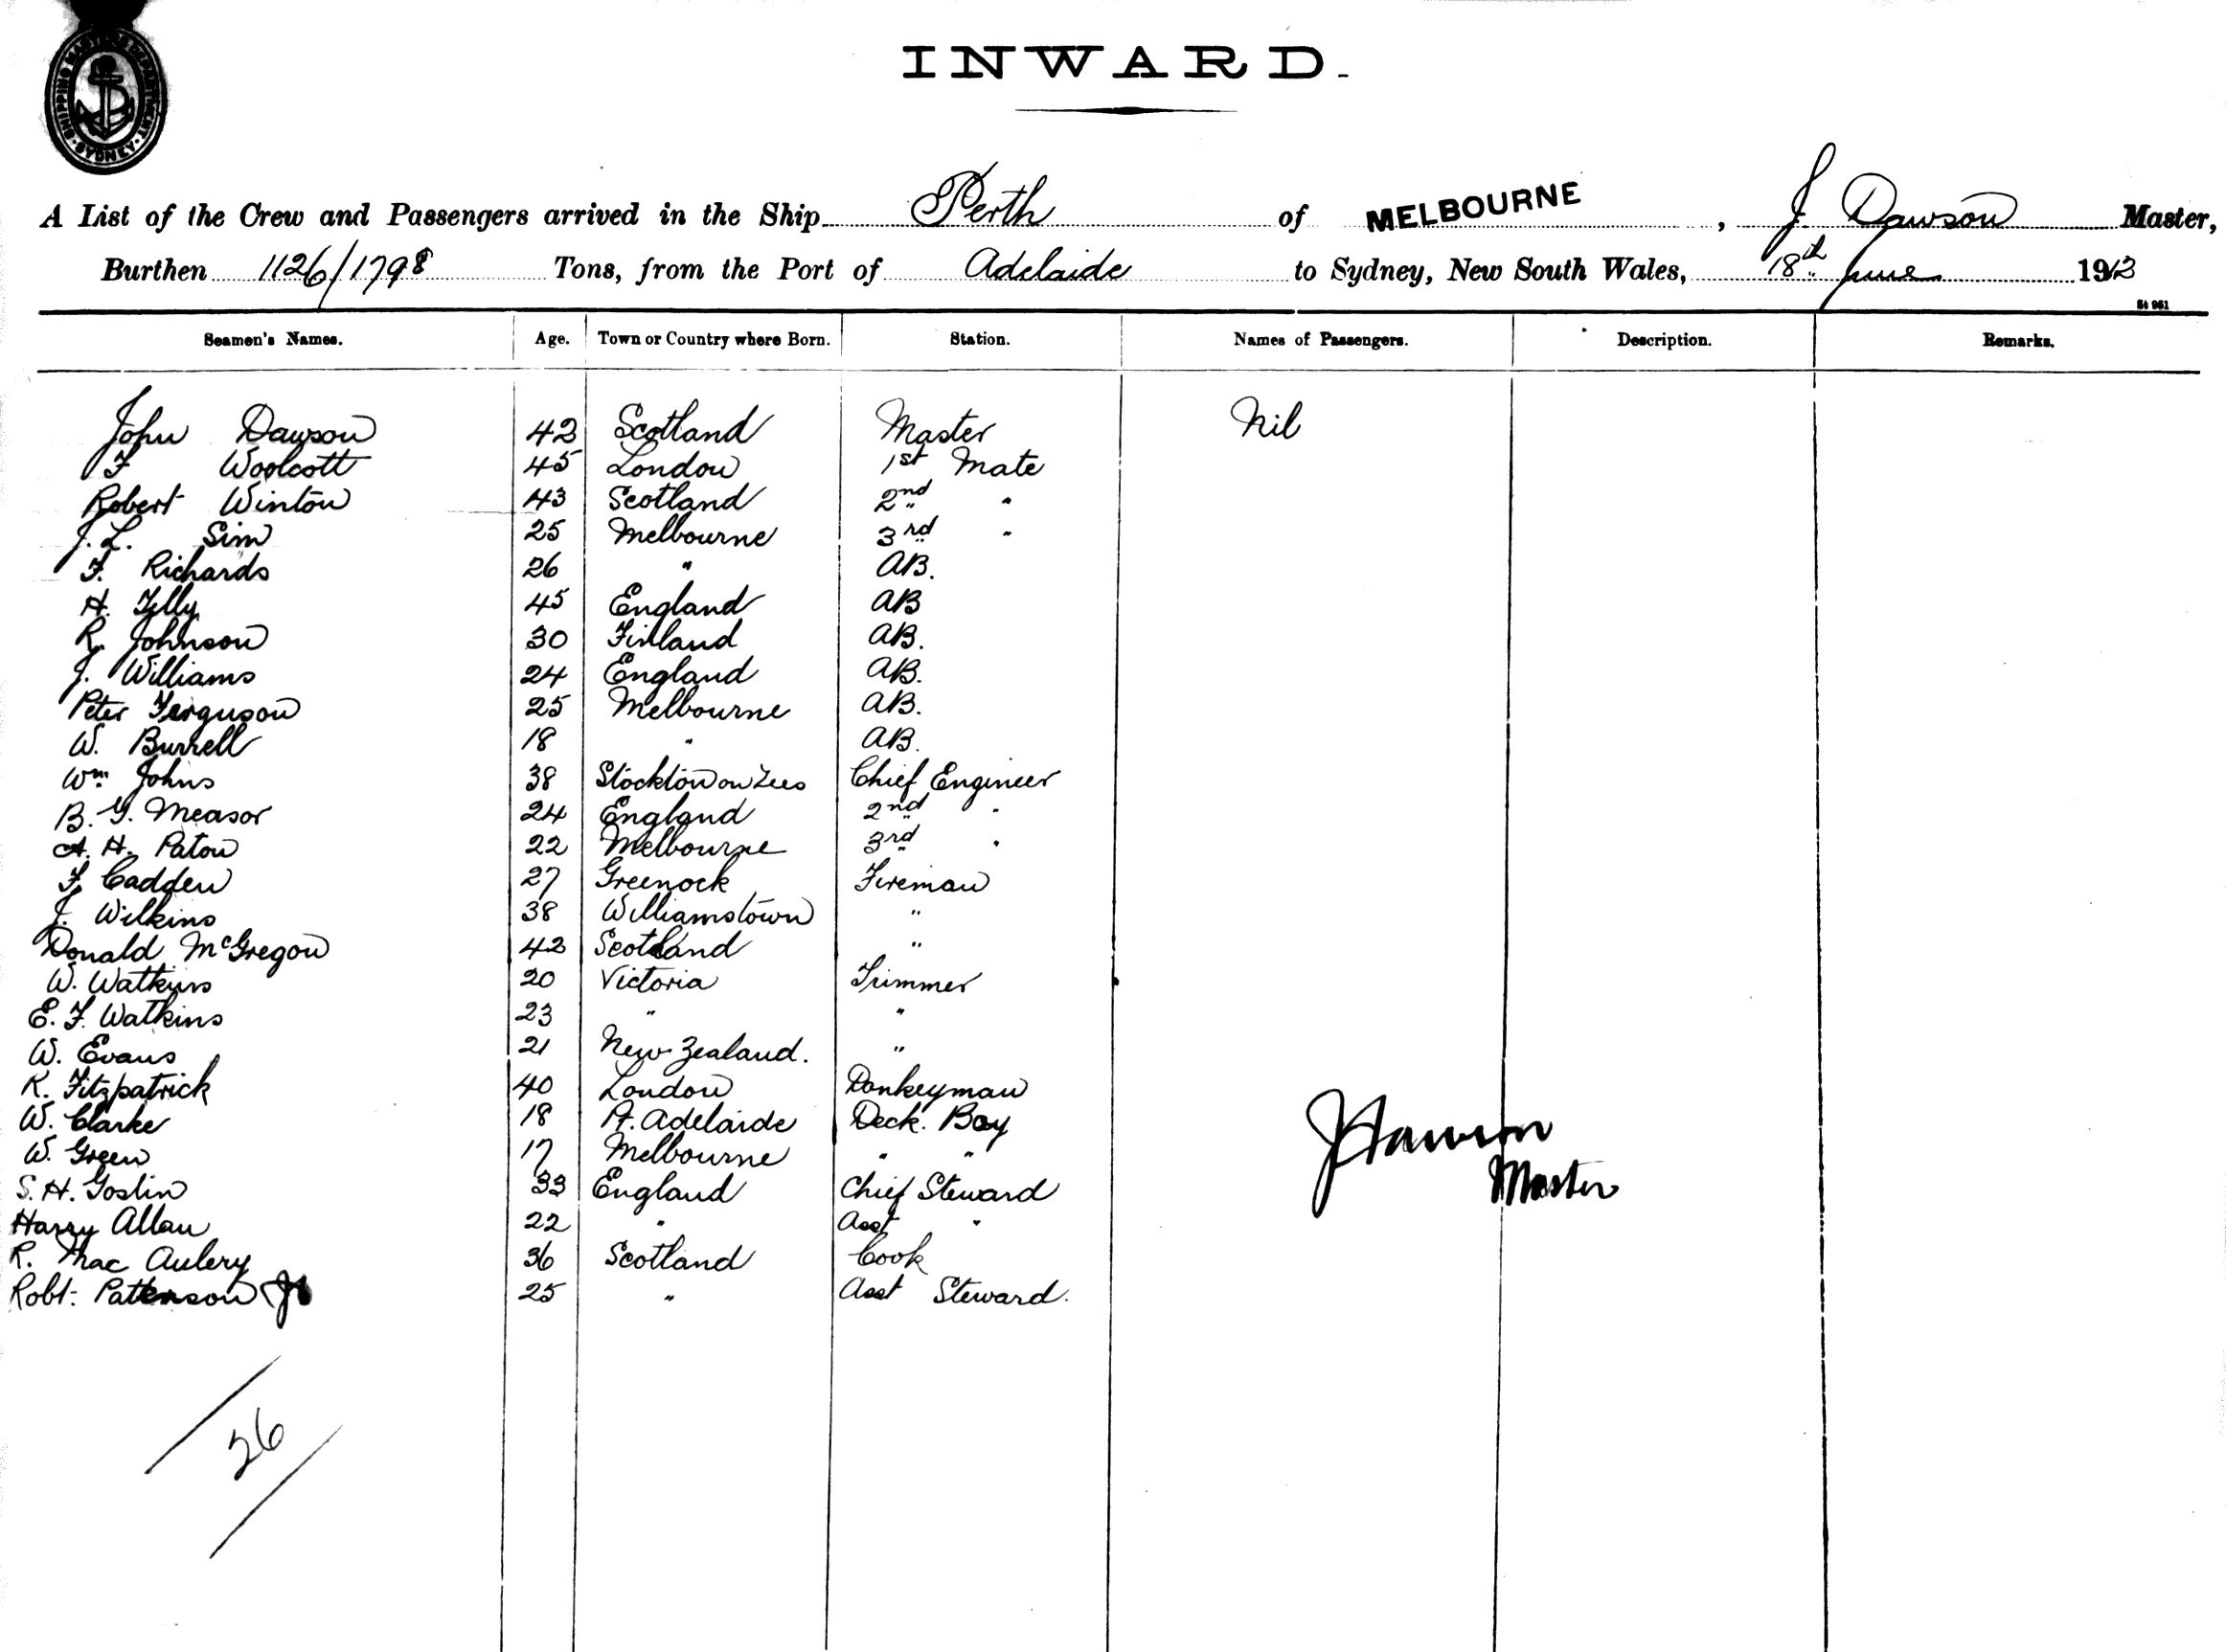 SHIPPING MASTER'S DEPARTMENT · SYDNEY ·
INWARD.
A List of the Crew and Passengers arrived in the Ship Perth of MELBOURNE, J Dawson Master,
Burthen 1126/1798 Tons, from the Port of Adelaide to Sydney, New South Wales, 18th June 1913
St 961
Seamen's Names. Age. Town or Country where Born. Station. Names of Passengers. Description. Remarks.
John Dawson 42 Scotland Master Nil
F Woolcott 45 London 1st Mate
Robert Winton 43 Scotland 2nd "
J. L. Sim 25 Melbourne 3rd "
F. Richards 26 " AB.
H. Tilly 45 England AB
R. Johnson 30 Finland AB.
J. Williams 24 England AB.
Peter Ferguson 25 Melbourne AB.
W. Burrell 18 " AB.
Wm. Johns 38 Stockton on Tees Chief Engineer
B. G. Measor 24 England 2nd "
A. H. Paton 22 Melbourne 3rd "
F. Cadden 27 Greenock Fireman
J. Wilkins 38 Williamstown "
Donald McGregor 42 Scotland "
W. Watkins 20 Victoria Trimmer
E. F. Watkins 23 " "
W. Evans 21 New Zealand. "
R. Fitzpatrick 40 London Donkeyman
W. Clarke 18 Pt. Adelaide Deck. Boy
W. Green 17 Melbourne " "
S. H. Goslin 33 England Chief Steward
Harry Allan 22 " Asst "
R. Mac Aulery 36 Scotland Cook
Robt. Patterson 25 " Asst Steward.
J Dawson
Master
26